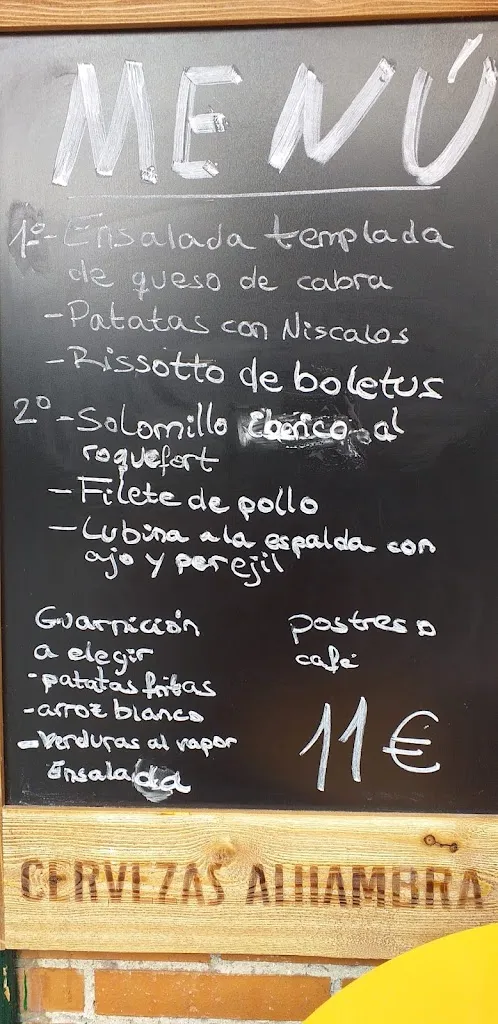 MENÚ
1º- Ensalada templada
de queso de cabra
- Patatas con Niscalos
- Rissotto de boletus
2º - Solomillo iberico al
roquefort
- Filete de pollo
- Lubina a la espalda con
ajo y perejil
Guarnición
a elegir
- patatas fritas
- arroz blanco
- verduras al vapor
Ensalada
postres o
café
11€
CERVEZAS ALHAMBRA